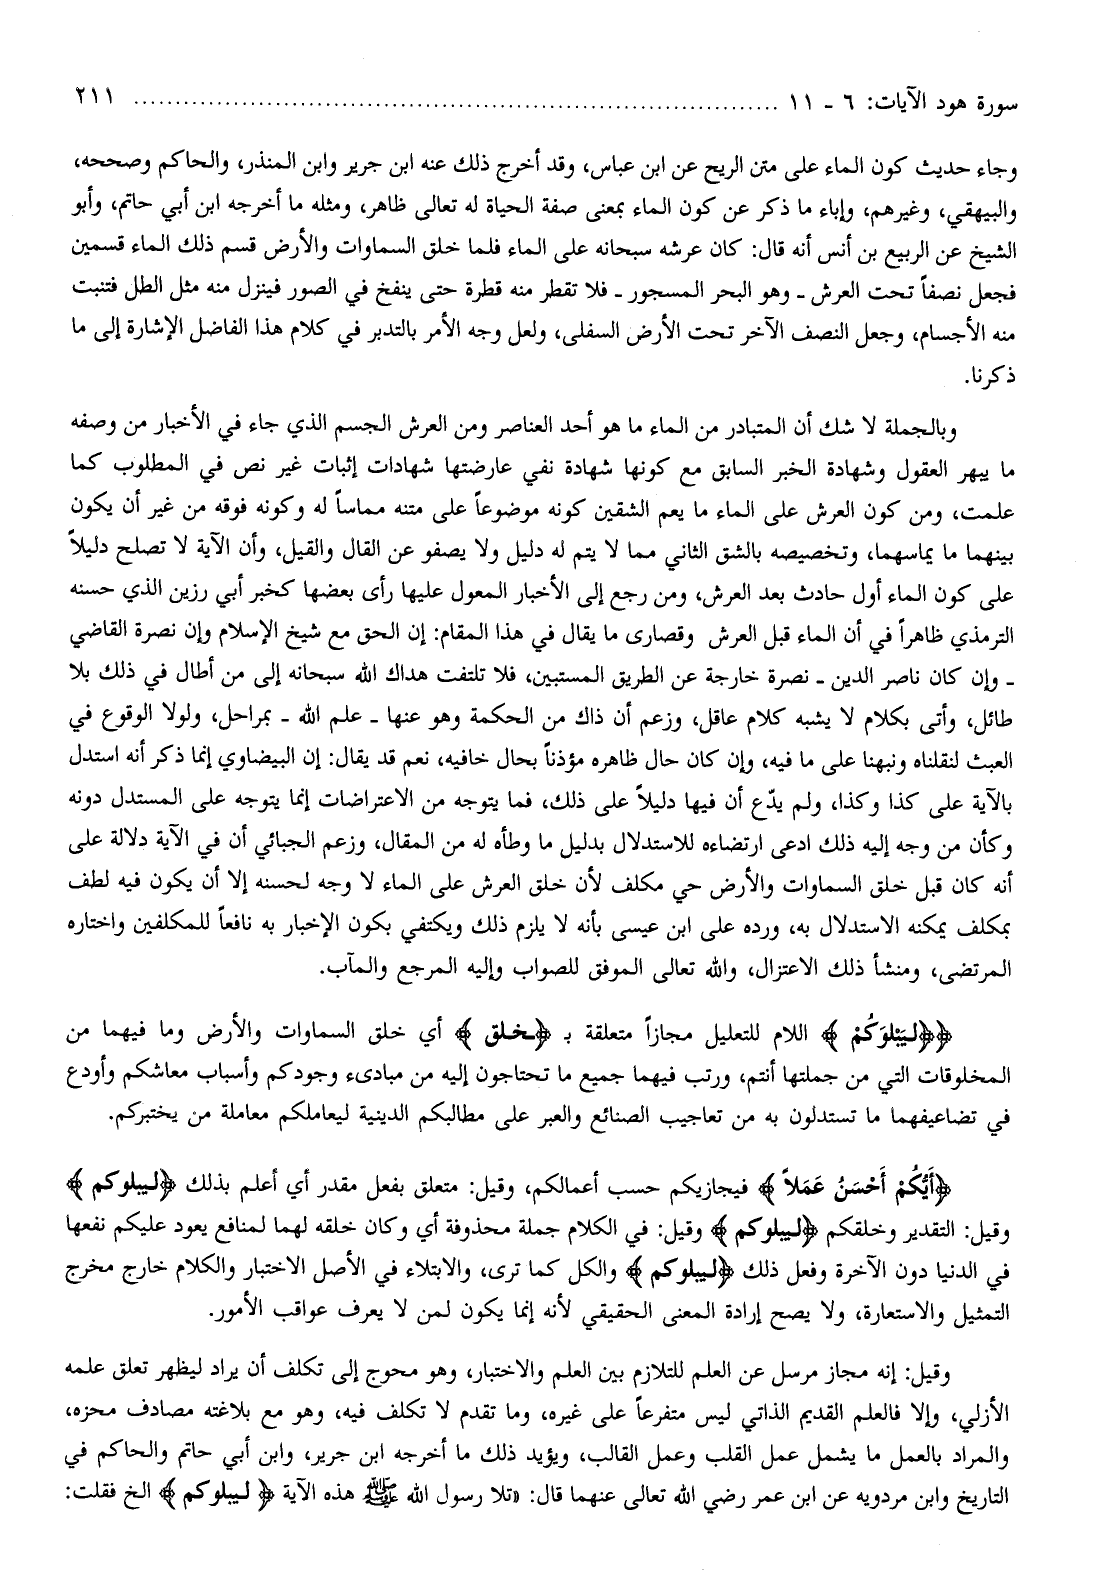 سورة هود الآيات: ٦ - ١١ ........................................................................ ٢١١
وجاء حديث كون الماء على متن الريح عن ابن عباس، وقد أخرج ذلك عنه ابن جرير وابن المنذر، والحاكم وصححه،
والبيهقي، وغيرهم، وإباء ما ذكر عن كون الماء بمعنى صفة الحياة له تعالى ظاهر، ومثله ما أخرجه ابن أبي حاتم، وأبو
الشيخ عن الربيع بن أنس أنه قال: كان عرشه سبحانه على الماء فلما خلق السماوات والأرض قسم ذلك الماء قسمين
فجعل نصفاً تحت العرش ـ وهو البحر المسجور ـ فلا تقطر منه قطرة حتى ينفخ في الصور فينزل منه مثل الطل فتنبت
منه الأجسام، وجعل النصف الآخر تحت الأرض السفلى، ولعل وجه الأمر بالتدبر في كلام هذا الفاضل الإشارة إلى ما
ذكرنا.
وبالجملة لا شك أن المتبادر من الماء ما هو أحد العناصر ومن العرش الجسم الذي جاء في الأخبار من وصفه
ما يبهر العقول وشهادة الخبر السابق مع كونها شهادة نفي عارضتها شهادات إثبات غير نص في المطلوب كما
علمت، ومن كون العرش على الماء ما يعم الشقين كونه موضوعاً على متنه مماساً له وكونه فوقه من غير أن يكون
بينهما ما يماسهما، وتخصيصه بالشق الثاني مما لا يتم له دليل ولا يصفو عن القال والقيل، وأن الآية لا تصلح دليلاً
على كون الماء أول حادث بعد العرش، ومن رجع إلى الأخبار المعول عليها رأى بعضها كخبر أبي رزين الذي حسنه
الترمذي ظاهراً في أن الماء قبل العرش وقصارى ما يقال في هذا المقام: إن الحق مع شيخ الإسلام وإن نصرة القاضي
ـ وإن كان ناصر الدين ـ نصرة خارجة عن الطريق المستبين، فلا تلتفت هداك الله سبحانه إلى من أطال في ذلك بلا
طائل، وأتى بكلام لا يشبه كلام عاقل، وزعم أن ذاك من الحكمة وهو عنها ـ علم الله ـ بمراحل، ولولا الوقوع في
العبث لنقلناه ونبهنا على ما فيه، وإن كان حال ظاهره مؤذناً بحال خافيه، نعم قد يقال: إن البيضاوي إنما ذكر أنه استدل
بالآية على كذا وكذا، ولم يدّع أن فيها دليلاً على ذلك، فما يتوجه من الاعتراضات إنما يتوجه على المستدل دونه
وكأن من وجه إليه ذلك ادعى ارتضاءه للاستدلال بدليل ما وطأه له من المقال، وزعم الجبائي أن في الآية دلالة على
أنه كان قبل خلق السماوات والأرض حي مكلف لأن خلق العرش على الماء لا وجه لحسنه إلا أن يكون فيه لطف
بمكلف يمكنه الاستدلال به، ورده على ابن عيسى بأنه لا يلزم ذلك ويكتفي بكون الإخبار به نافعاً للمكلفين واختاره
المرتضى، ومنشأ ذلك الاعتزال، والله تعالى الموفق للصواب وإليه المرجع والمآب.
﴿﴿لِيَبْلُوَكُمْ﴾ اللام للتعليل مجازاً متعلقة بـ ﴿خلق﴾ أي خلق السماوات والأرض وما فيهما من
المخلوقات التي من جملتها أنتم، ورتب فيهما جميع ما تحتاجون إليه من مبادىء وجودكم وأسباب معاشكم وأودع
في تضاعيفهما ما تستدلون به من تعاجيب الصنائع والعبر على مطالبكم الدينية ليعاملكم معاملة من يختبركم.
﴿أَيُّكُمْ أَحْسَنُ عَمَلاً﴾ فيجازيكم حسب أعمالكم، وقيل: متعلق بفعل مقدر أي أعلم بذلك ﴿ليبلوكم﴾
وقيل: التقدير وخلقكم ﴿ليبلوكم﴾ وقيل: في الكلام جملة محذوفة أي وكان خلقه لهما لمنافع يعود عليكم نفعها
في الدنيا دون الآخرة وفعل ذلك ﴿ليبلوكم﴾ والكل كما ترى، والابتلاء في الأصل الاختبار والكلام خارج مخرج
التمثيل والاستعارة، ولا يصح إرادة المعنى الحقيقي لأنه إنما يكون لمن لا يعرف عواقب الأمور.
وقيل: إنه مجاز مرسل عن العلم للتلازم بين العلم والاختبار، وهو محوج إلى تكلف أن يراد ليظهر تعلق علمه
الأزلي، وإلا فالعلم القديم الذاتي ليس متفرعاً على غيره، وما تقدم لا تكلف فيه، وهو مع بلاغته مصادف محزه،
والمراد بالعمل ما يشمل عمل القلب وعمل القالب، ويؤيد ذلك ما أخرجه ابن جرير، وابن أبي حاتم والحاكم في
التاريخ وابن مردويه عن ابن عمر رضي الله تعالى عنهما قال: «تلا رسول الله ﷺ هذه الآية ﴿ليبلوكم﴾ الخ فقلت: